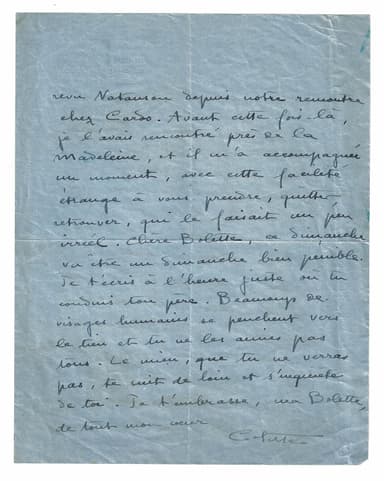 revu Natanson depuis notre rencontre
chez Cardo. Avant cette fois-là,
je l'avais rencontré près de la
Madeleine, et il m'a accompagnée
un moment, avec cette facilité
étrange à vous prendre, quitter
retrouver, qui le faisait un peu
irréel. Chère Bolette, ce dimanche
va être un dimanche bien pénible.
Je t'écris à l'heure juste où tu
conduis ton père. Beaucoup de
visages humains se penchent vers
le tien et tu ne les aimes pas
tous. Le mien, que tu ne verras
pas, te suit de loin et s'inquiète
de toi. Je t'embrasse, ma Bolette,
de tout mon cœur
Colette